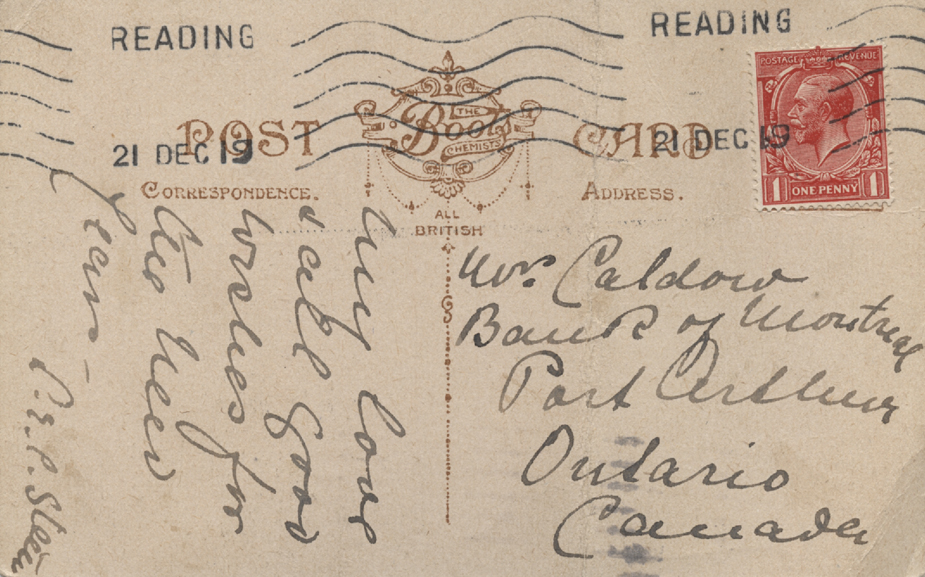 READING
READING
21 DEC 19
21 DEC 19
POST CARD
THE
Boots
CHEMISTS
POSTAGE REVENUE
1 ONE PENNY 1
CORRESPONDENCE.
ADDRESS.
ALL
BRITISH
My love
& all good
wishes for
the New
Year –
Mrs Caldow
Bank of Montreal
Port Arthur
Ontario
Canada